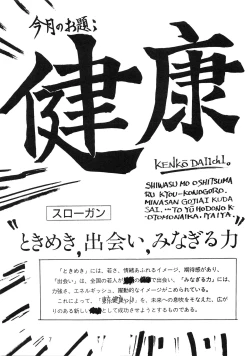 今月のお題；
健康
KENKŌ DAIICHI。
SHIWASU MO OSHITSUMA
RU KYOU-KONOGORO.
MINASAN GOJIAI KUDA
SAI. … TO YŪ HODONO K
OTOMONAIKA, IYAIYA
スローガン
"ときめき,出会い,みなぎる力"
「ときめき」には、若さ、情緒あふれるイメージ、期待感があり、
「出会い」は、全国の若人が の で出会い、「みなぎる力」には、
力強さ、エネルギッシュ、躍動的なイメージがこめられている。
これによって、「 」を、未来への意欲をそなえた、広が
りのある新しい として成功させようとするものである。